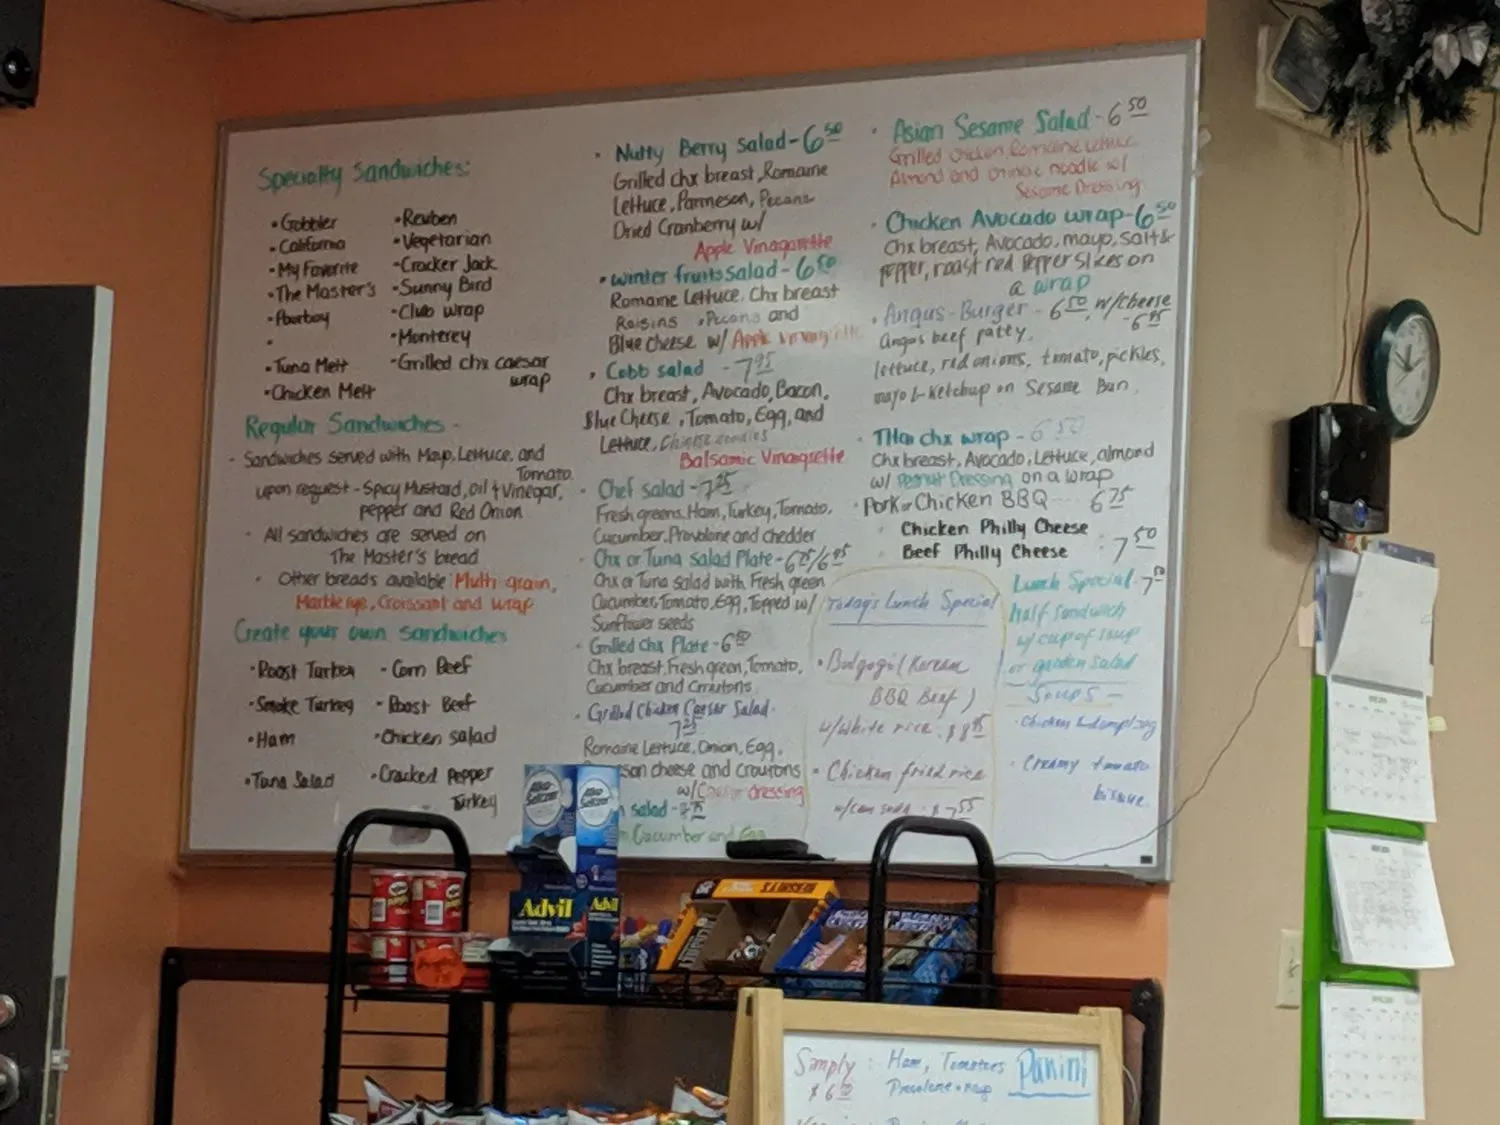 Specialty Sandwiches:
• Gobbler
• California
• My Favorite
• The Master's
• Poorboy
•
• Tuna Melt
• Chicken Melt
• Reuben
• Vegetarian
• Cracker Jack
• Sunny Bird
• Club wrap
• Monterey
• Grilled chx caesar
wrap
Regular Sandwiches -
• Sandwiches served with Mayo, Lettuce, and
Tomato
upon request - Spicy Mustard, oil & Vinegar,
pepper and Red Onion
• All sandwiches are served on
The Master's bread
• Other breads available: Multi grain,
Marble rye, Croissant and wrap
Create your own sandwiches
• Roast Turkey
• Smoke Turkey
• Ham
• Tuna Salad
• Corn Beef
• Roast Beef
• Chicken salad
• Cracked Pepper
Turkey
• Nutty Berry Salad - 6 50
Grilled chx breast, Romaine
Lettuce, Parmeson, Pecans
Dried Cranberry w/
Apple Vinagarette
• winter fruits Salad - 6 50
Romaine Lettuce, Chx breast
Raisins, Pecans and
Blue cheese w/ Apple
• Cobb salad - 7 95
Chx breast, Avocado, Bacon,
Blue Cheese, Tomato, Egg, and
Lettuce, Chinese noodles
Balsamic Vinaigrette
• Chef salad - 7 25
Fresh greens, Ham, Turkey, Tomato,
Cucumber, Provolone and chedder
• Chx or Tuna salad Plate - 6 75/6 95
Chx or Tuna salad with Fresh green
Cucumber, Tomato, Egg, Topped w/
Sunflower seeds
• Grilled chx Plate - 6 50
Chx breast, Fresh green, Tomato,
Cucumber and Croutons
• Grilled Chicken Caesar Salad -
7 25
Romaine Lettuce, Onion, Egg,
son cheese and croutons
w/ Caesar dressing
salad -
Cucumber and Egg
• Asian Sesame Salad - 6 50
Grilled chicken, Romaine Lettuce
Almond and chinese noodle w/
Sesame Dressing
• Chicken Avocado wrap - 6 50
Chx breast, Avocado, mayo, salt &
pepper, roast red Pepper slices on
a wrap
• Angus-Burger - 6 50, w/cheese
- 6 95
Angus beef patty,
lettuce, red onions, tomato, pickles,
mayo & ketchup on Sesame Bun.
• THai chx wrap - 6 50
Chx breast, Avocado, Lettuce, almond
w/ Peanut Dressing on a wrap
• Pork or Chicken BBQ 6 75
• Chicken Philly Cheese
• Beef Philly Cheese : 7 50
Today's Lunch Special
• Bulgogi (Korean
BBQ Beef)
w/ white rice. $8 95
• Chicken fried rice
$7 55
Lunch Special - 7 50
half sandwich
w/ cup of soup
or garden salad
Soups -
• Chicken & dumpling
• Creamy tomato
bisque
Alka-Seltzer
Alka-Seltzer
Advil
Advil
Pringles
Pringles
Simply : Ham, Tomatoes
Panini